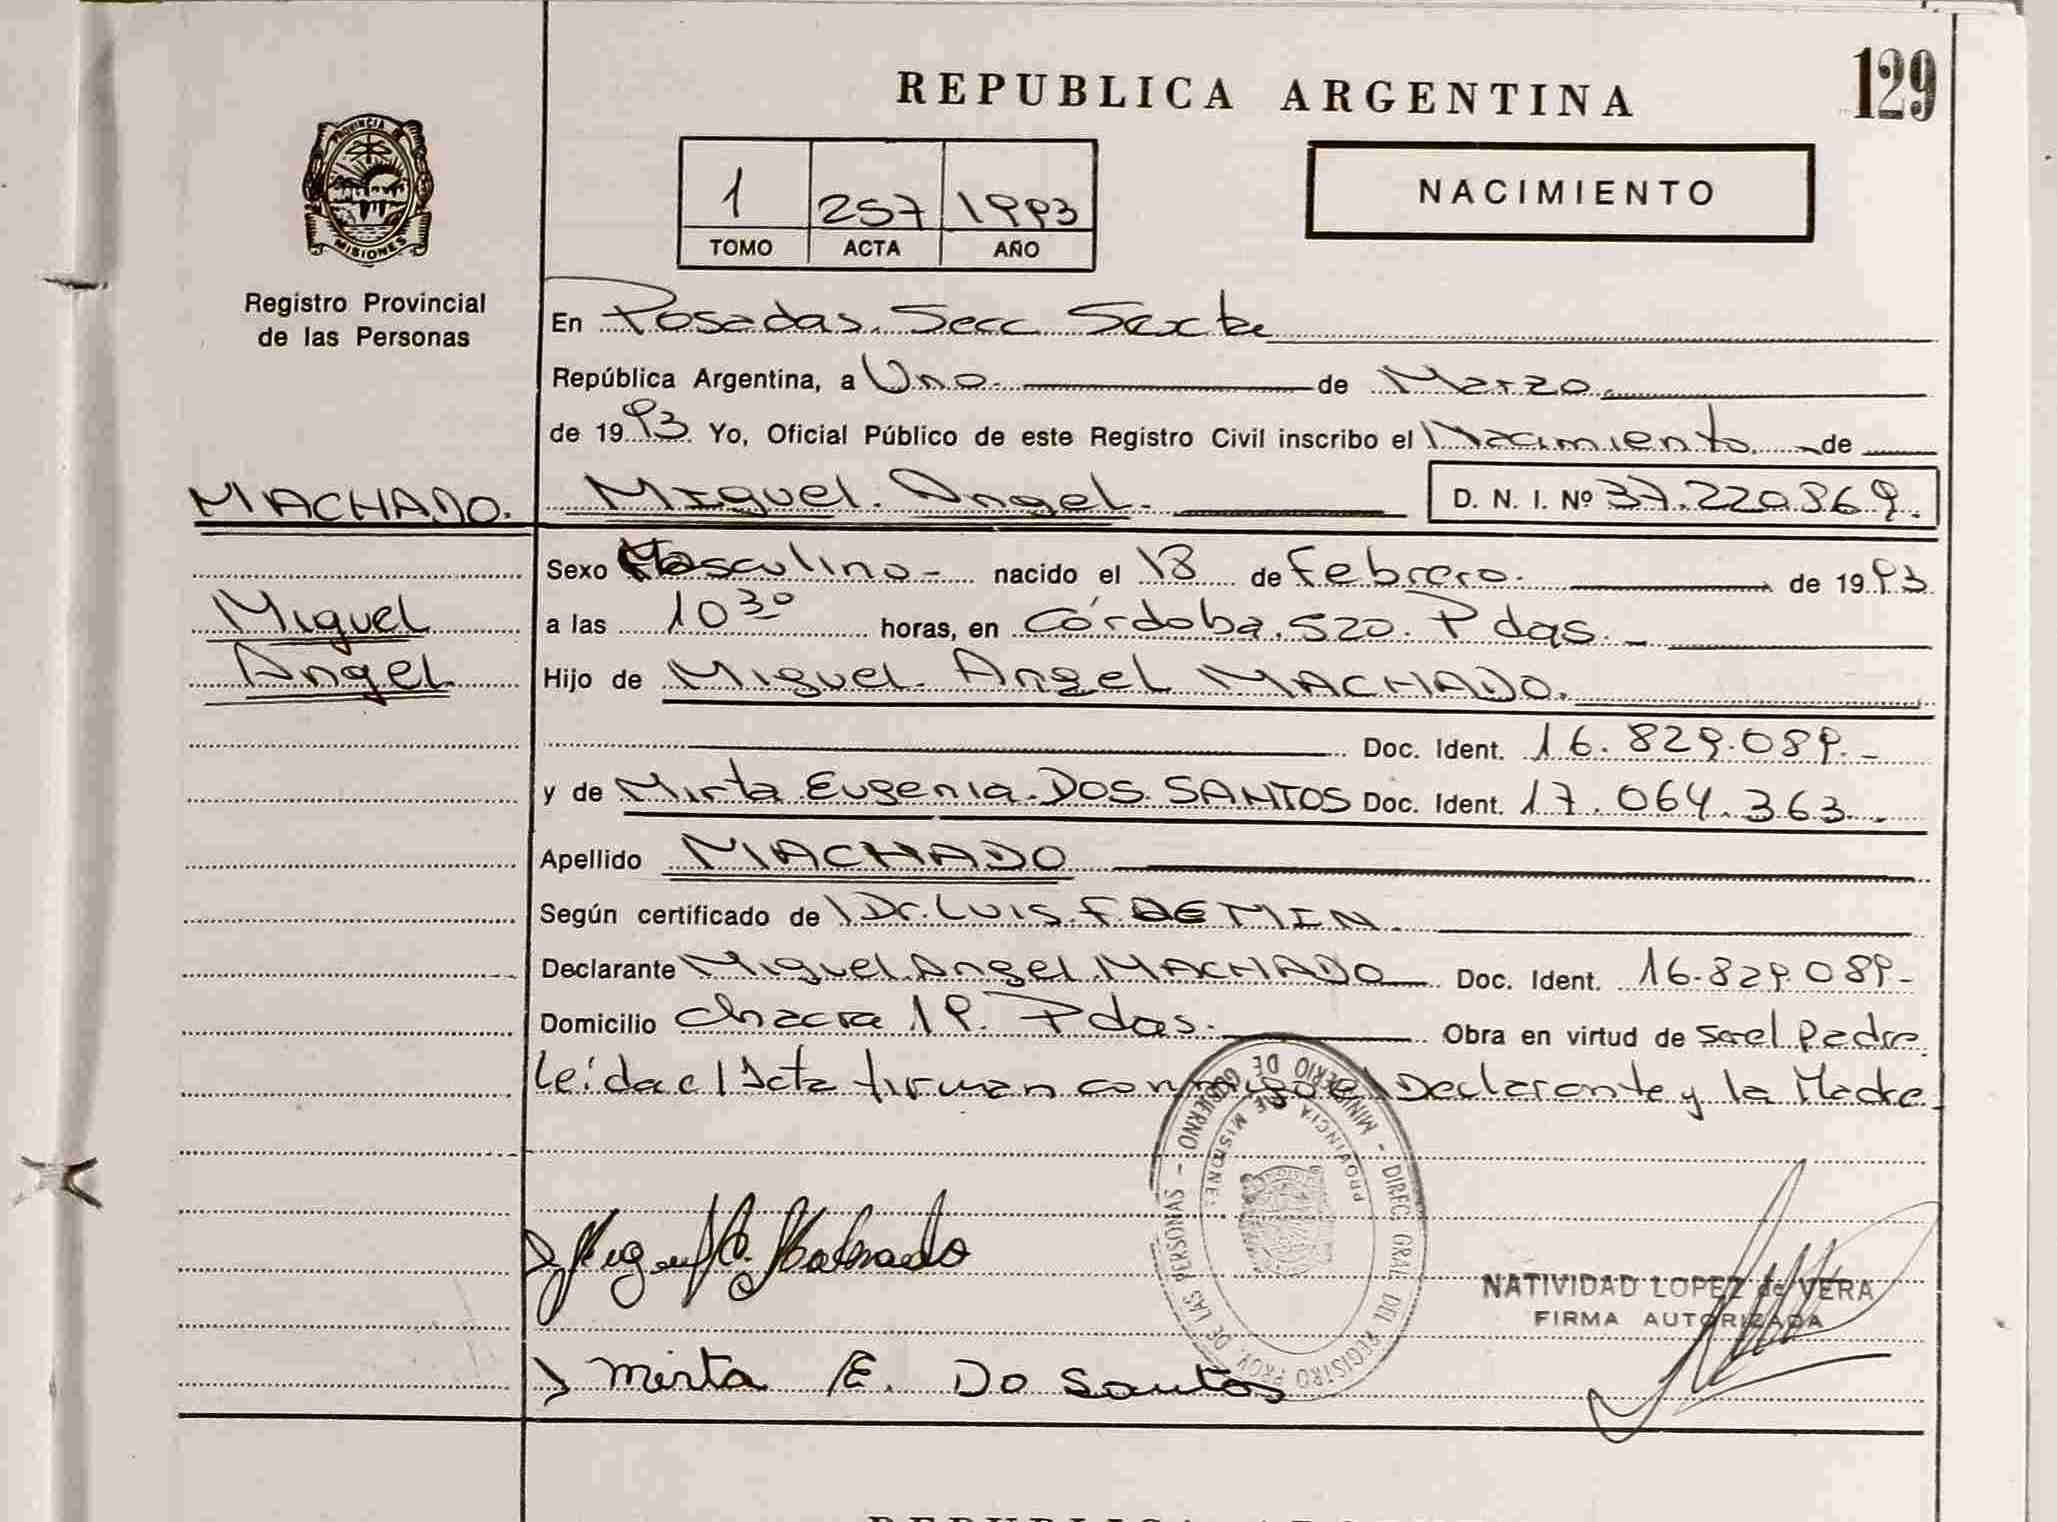 129
REPUBLICA ARGENTINA
PROVINCIA DE
MISIONES
Registro Provincial
de las Personas
1 257 1993
TOMO ACTA AÑO
NACIMIENTO
En Posadas. Secc Sexta
República Argentina, a Uno de Marzo
de 1993. Yo, Oficial Público de este Registro Civil inscribo el Nacimiento de
MACHADO. Miguel Angel D. N. I. Nº 37.220.869.
Sexo Masculino- nacido el 18 de Febrero. de 1993
Miguel a las 10 30 horas, en Córdoba. 520. Pdas.
Angel Hijo de Miguel Angel MACHADO.
Doc. Ident. 16.829.089.-
y de Mirta Eugenia DOS SANTOS Doc. Ident. 17.064.363.-
Apellido MACHADO
Según certificado de Dr. LUIS. F.
Declarante Miguel Angel MACHADO Doc. Ident. 16.829.089-
Domicilio chacra 19. Pdas. Obra en virtud de ser el Padre.
Leída el Acta firman conmigo el Declarante y la Madre
MINISTERIO DE GOBIERNO - DIREC. GRAL. DEL REGISTRO PROV. DE LAS PERSONAS -
PROVINCIA DE MISIONES
Miguel A. Machado
NATIVIDAD LOPEZ de VERA
FIRMA AUTORIZADA
Mirta E. Do Santos